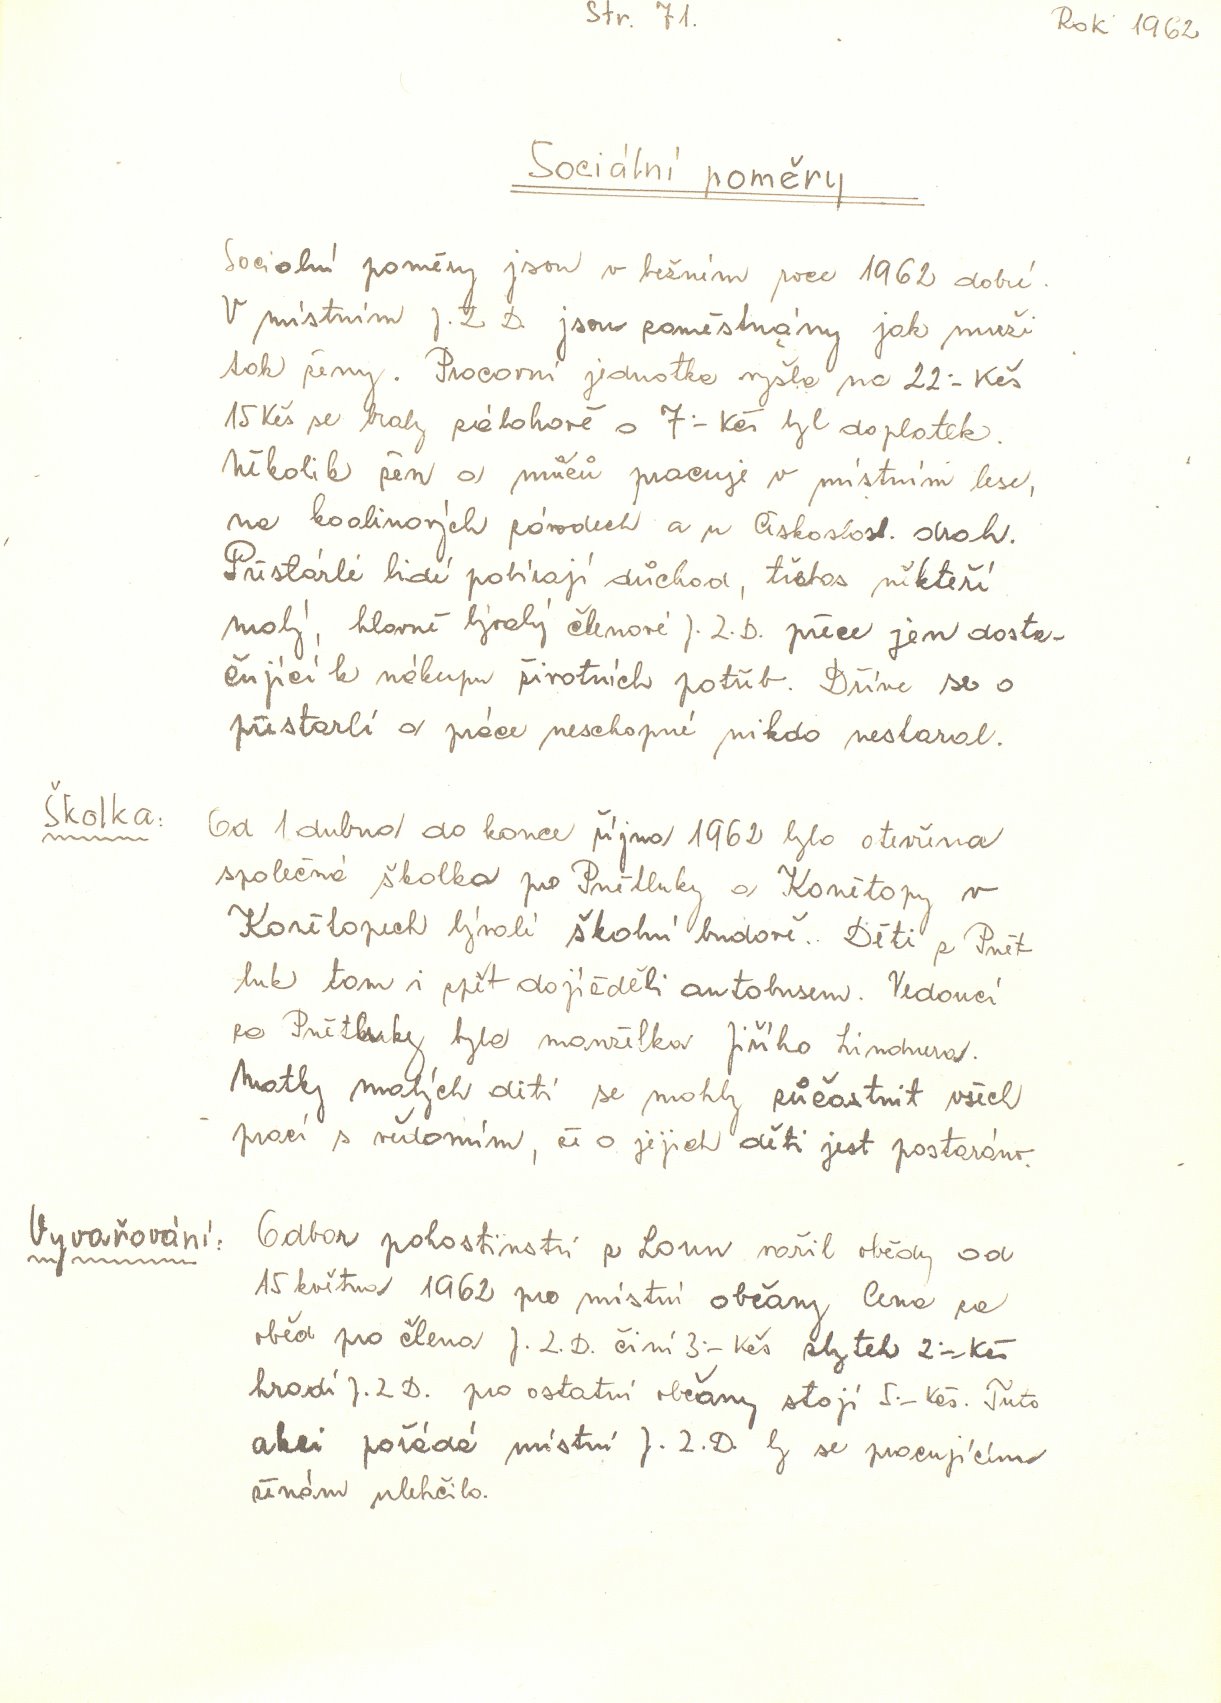 Str. 71.
Rok 1962
Sociální poměry
Sociální poměry jsou v bežním roce 1962 dobré.
V místním J.Z.D. jsou zaměstnány jak muži
tak ženy. Pracovní jednotka vyšla na 22.- Kčs
15 Kčs se braly zálohově a 7.- Kčs byl doplatek.
Několik žen a mužů pracuje v místním lese,
na kaolinových závodech a u Českoslosl. drah.
Přestárlé lidé pobírají důchod, třebas někteří
malý, hlavně bývalý členové J.Z.D. přece jen posta-
čující k nákupu životních potřeb. Dříve se o
přestarlí a práce neschopné nikdo nestaral.
Školka: Od 1 dubna do konce října 1962 byla otevřena
společná školka pro Pnětluky a Konětopy v
Konětopech bývalí školní budově. Děti z Pnět
luk tam i zpět dojížděli autobusem. Vedoucí
za Pnětluky byla manželka Jiřího Lindnera.
Matky malých dětí se mohly zůčastnit všech
prací s vědomím, že o jejich děti jest postaráno.
Vyvařování: Odbor pohostinství z Loun vařil obědy od
15 května 1962 pro místní občany Cena za
oběd pro člena J.Z.D. činí 3.- Kčs zbytek 2.- Kčs
hradí J.Z.D. pro ostatní občany stojí 5.- Kčs. Tuto
akci pořádá místní J.Z.D. by se pracujícím
ženám ulehčilo.